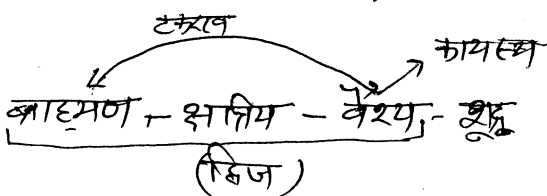 टकराव
कायस्थ
ब्राह्मण - क्षत्रिय - वैश्य - शूद्र
(द्विज)